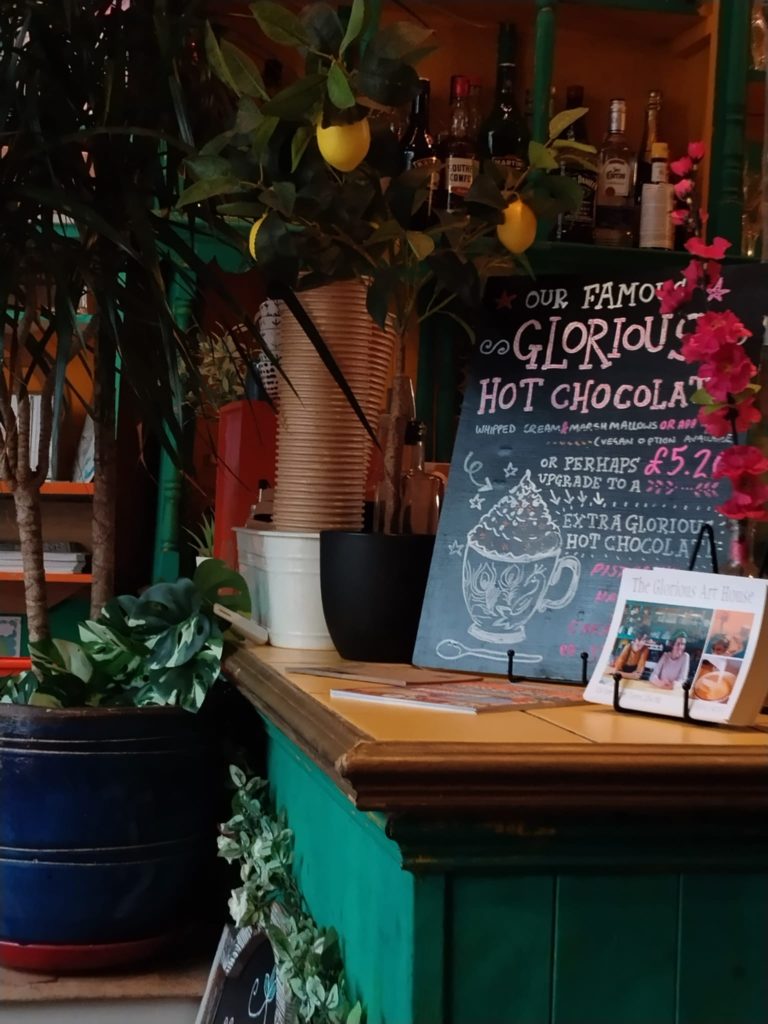 OUR FAMOUS
GLORIOUS
HOT CHOCOLAT
WHIPPED CREAM & MARSHMALLOWS OR ADD
(VEGAN OPTION AVAILABLE
OR PERHAPS £5.20
UPGRADE TO A
EXTRA GLORIOUS
HOT CHOCOLA
The Glorious Art House
SOUTHE
COMFO
MARTINI